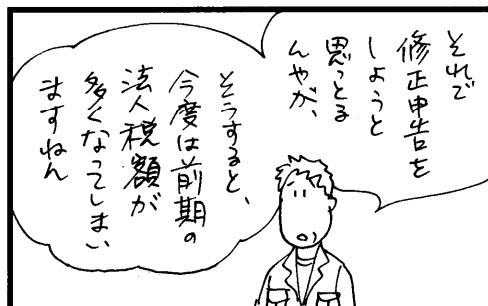 それで
修正申告を
しようと
思っとる
んやが、
そうすると、
今度は前期の
法人税額が
多くなってしまい
ますねん